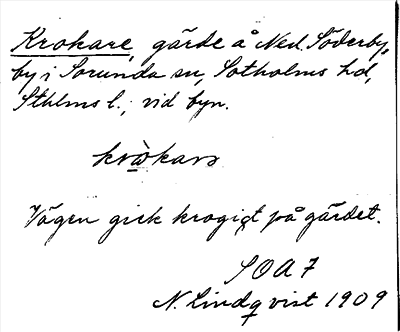 Krokare, gärde å Ned. Söderby,
by i Sorunda sn, Sotholms hd,
Sthlms l., vid byn.
kròkarə
Vägen gick krogigt på gärdet.
SOA 7
N. Lindqvist 1909